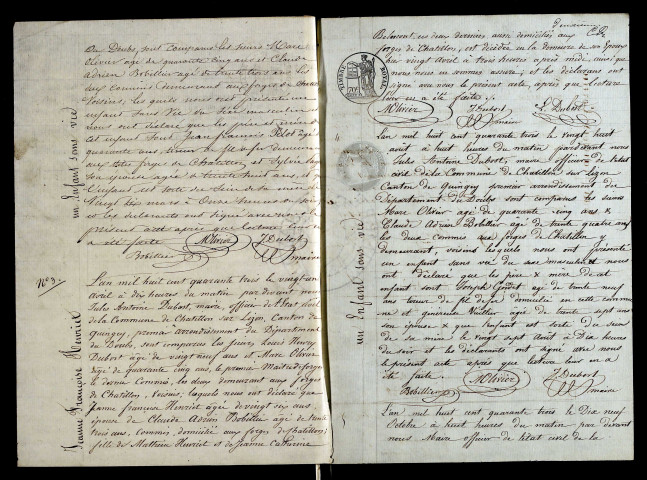 Du Doubs, sont comparus les sieurs Marc
Olivier agé de quarante cinq ans et Claude
Adrien Bobillier agé de trente trois ans les
deux commis demeurant aux forges de Chatillon
Voisins, les quels nous ont présenté un
enfant Sans Vie du Sexe masculin
nous ont déclaré que les père et mère de
cet enfant sont Jean François Pelot agé de
quarante ans tireur de fil de fer demeurant
aux dites forges de Chatillon et Sylvie
son épouse agée de trente huit ans, et que
l'enfant est sorti du Sein de sa mère le
Vingt six mars à Onze heures du soir,
et les déclarants ont signé avec nous le
présent acte après que lecture leur en
a été faite MOlivier J. Dubost
Bobillier maire
un Enfant sans vie
N° 3.
Jeanne Françoise Henriet
L'an mil huit cent quarante trois le vingt un
avril à dix heures du matin par devant nous
Jules Antoine Dubost, maire, officier de l'Etat civil
de la Commune de Chatillon sur Lizon, Canton de
Quingey, premier arrondissement du Département
du Doubs, sont comparus les sieurs Louis Henry
Dubost agé de vingt neuf ans et Marc Olivier
agé de quarante cinq ans, le premier Maitre de forges
le second Commis, les deux demeurant aux forges
de Chatillon, Voisins, lesquels nous ont déclaré que
Jeanne Françoise Henriet agée de vingt six ans
épouse de Claude Adrien Bobillier agé de trente
trois ans, Commis, domicilié aux forges de Chatillon,
fille de Mathieu Henriet et de Jeanne Catherine
Belmont, ces deux derniers aussi domiciliés aux
forges de Chatillon, est décédée en la demeure de son Epoux
hier vingt avril à trois heures après midi, ainsi que
nous nous en sommes assuré; et les déclarants ont
signé avec nous le présent acte, après que lecture
leur en a été faite.
TIMBRE ROYAL
MOlivier J. Dubost L. Dubost
maire
un Enfant sans vie
L'an mil huit cent quarante trois le vingt huit
août à huit heures du matin pardevant nous
Jules Antoine Dubost, maire officier de l'état
civil de la Commune de Chatillon sur Lizon
Canton de Quingey premier arrondissement du
Département du Doubs sont comparus les sieurs
Marc Olivier agé de quarante cinq ans &
Claude Adrien Bobillier agé de trente quatre ans
les deux commis aux forges de Chatillon y
demeurant, voisins lesquels nous ont présenté
un enfant sans vie du sexe masculin & nous
ont déclaré que les père & mère de cet
enfant sont Joseph Godet agé de trente neuf
ans tireur de fil de fer domicilié en cette commune
et Generoise Vuillier agée de trente sept ans
son épouse & que l'enfant est sorti du sein
de sa mère le vingt sept août à Dix heures
du soir et les déclarants ont signé avec nous
le présent acte après que lecture leur en a
été faite. MOlivier J. Dubost
Bobillier maire
L'an mil huit cent quarante trois le Dix neuf
Octobre à huit heures du matin par devant
nous Maire officier de l'état civil de la